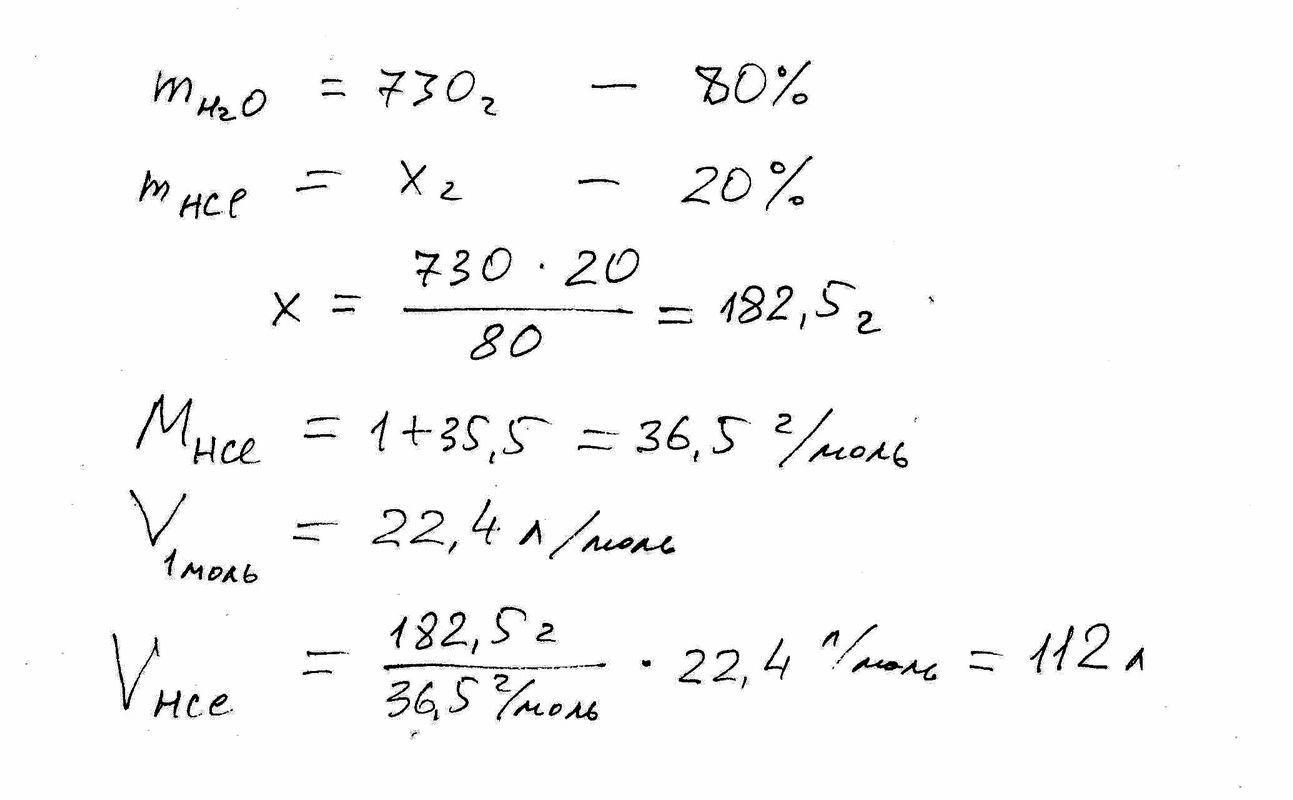 m H₂O = 730 г — 80%
m HCl = x г — 20%
x = 730 · 20 / 80 = 182,5 г
M HCl = 1+35,5 = 36,5 г/моль
V 1 моль = 22,4 л/моль
V HCl = 182,5 г / 36,5 г/моль · 22,4 л/моль = 112 л